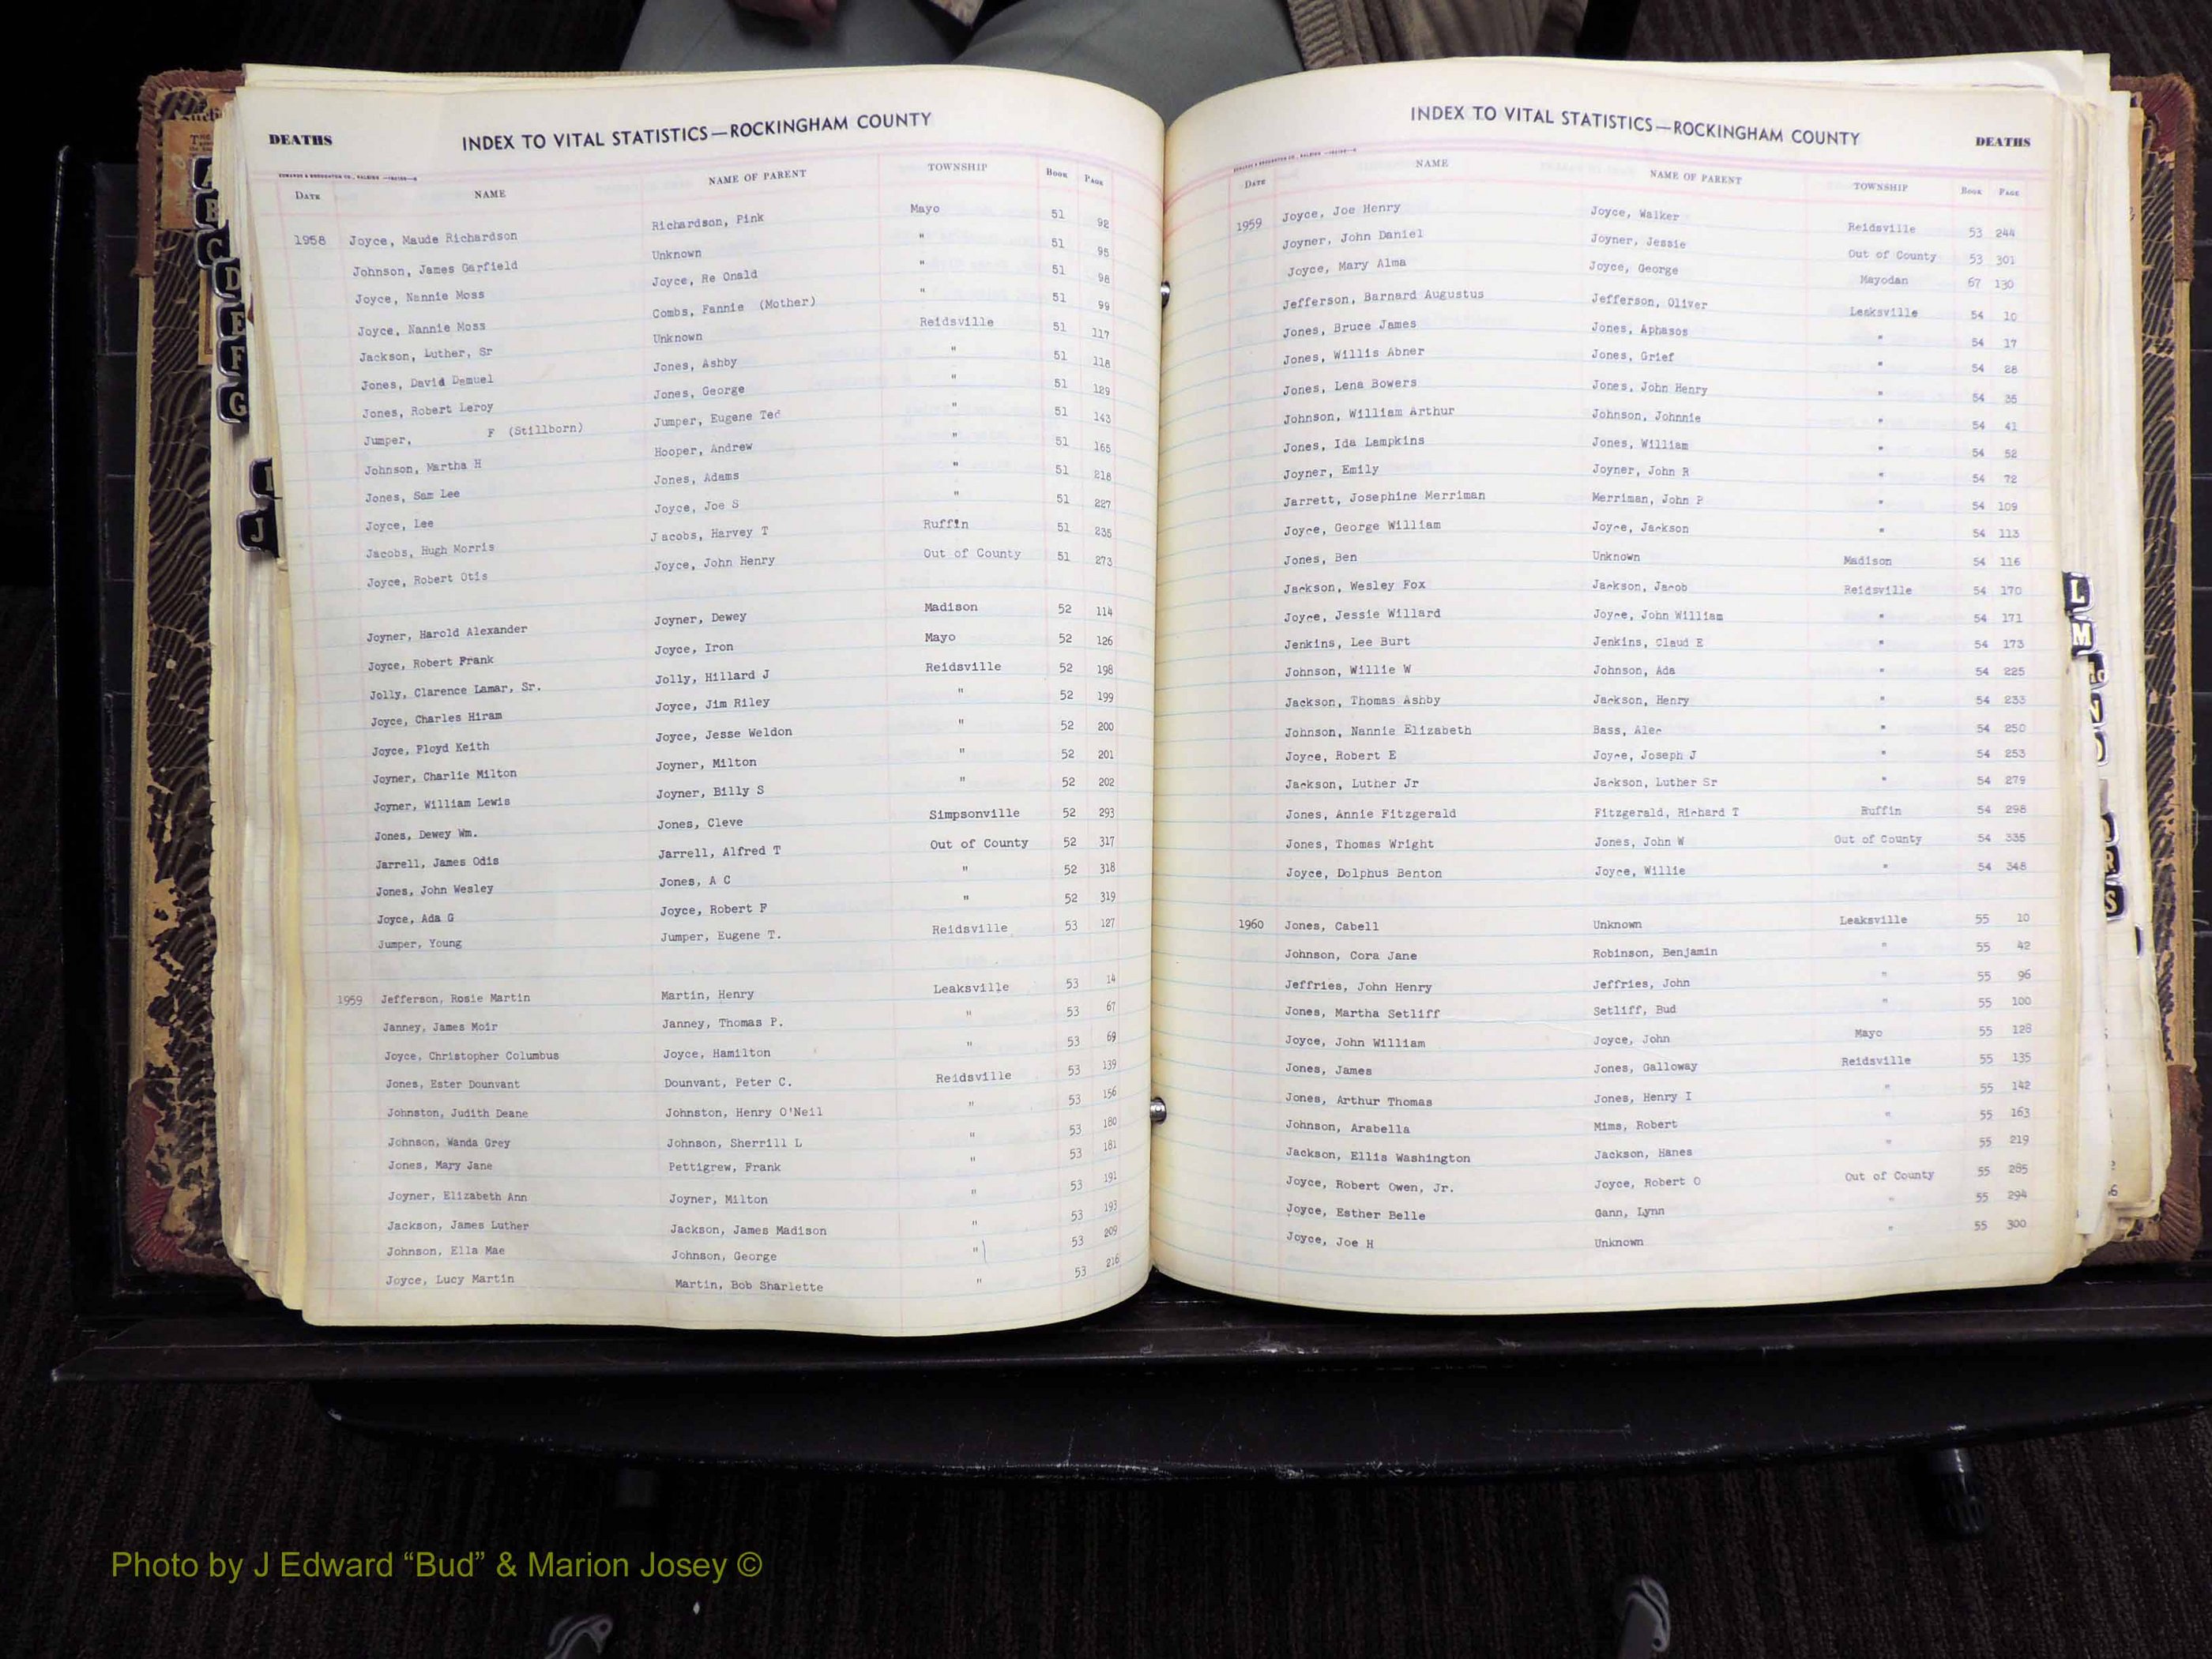 DEATHS INDEX TO VITAL STATISTICS—ROCKINGHAM COUNTY
DATE NAME NAME OF PARENT TOWNSHIP BOOK PAGE
1958 Joyce, Maude Richardson Richardson, Pink Mayo 51 92
Johnson, James Garfield Unknown " 51 95
Joyce, Nannie Moss Joyce, Re Onald " 51 98
Joyce, Nannie Moss Combs, Fannie (Mother) " 51 99
Jackson, Luther, Sr Unknown Reidsville 51 117
Jones, David Demuel Jones, Ashby " 51 118
Jones, Robert Leroy Jones, George " 51 129
Jumper, F (Stillborn) Jumper, Eugene Ted " 51 143
Johnson, Martha H Hooper, Andrew " 51 165
Jones, Sam Lee Jones, Adams " 51 218
Joyce, Lee Joyce, Joe S " 51 227
Jacobs, Hugh Morris Jacobs, Harvey T Ruffin 51 235
Joyce, Robert Otis Joyce, John Henry Out of County 51 273
Joyner, Harold Alexander Joyner, Dewey Madison 52 114
Joyce, Robert Frank Joyce, Iron Mayo 52 126
Jolly, Clarence Lamar, Sr. Jolly, Hillard J Reidsville 52 198
Joyce, Charles Hiram Joyce, Jim Riley " 52 199
Joyce, Floyd Keith Joyce, Jesse Weldon " 52 200
Joyner, Charlie Milton Joyner, Milton " 52 201
Joyner, William Lewis Joyner, Billy S " 52 202
Jones, Dewey Wm. Jones, Cleve Simpsonville 52 293
Jarrell, James Odis Jarrell, Alfred T Out of County 52 317
Jones, John Wesley Jones, A C " 52 318
Joyce, Ada G Joyce, Robert F " 52 319
Jumper, Young Jumper, Eugene T. Reidsville 53 127
1959 Jefferson, Rosie Martin Martin, Henry Leaksville 53 14
Janney, James Moir Janney, Thomas P. " 53 67
Joyce, Christopher Columbus Joyce, Hamilton " 53 69
Jones, Ester Dounvant Dounvant, Peter C. Reidsville 53 139
Johnston, Judith Deane Johnston, Henry O'Neil " 53 156
Johnson, Wanda Grey Johnson, Sherrill L " 53 180
Jones, Mary Jane Pettigrew, Frank " 53 181
Joyner, Elizabeth Ann Joyner, Milton " 53 191
Jackson, James Luther Jackson, James Madison " 53 193
Johnson, Ella Mae Johnson, George " 53 209
Joyce, Lucy Martin Martin, Bob Sharlette " 53 216
INDEX TO VITAL STATISTICS—ROCKINGHAM COUNTY DEATHS
DATE NAME NAME OF PARENT TOWNSHIP BOOK PAGE
1959 Joyce, Joe Henry Joyce, Walker Reidsville 53 244
Joyner, John Daniel Joyner, Jessie Out of County 53 301
Joyce, Mary Alma Joyce, George Mayodan 67 130
Jefferson, Barnard Augustus Jefferson, Oliver Leaksville 54 10
Jones, Bruce James Jones, Aphasos " 54 17
Jones, Willis Abner Jones, Grief " 54 28
Jones, Lena Bowers Jones, John Henry " 54 35
Johnson, William Arthur Johnson, Johnnie " 54 41
Jones, Ida Lampkins Jones, William " 54 52
Joyner, Emily Joyner, John R " 54 72
Jarrett, Josephine Merriman Merriman, John P " 54 109
Joyce, George William Joyce, Jackson " 54 113
Jones, Ben Unknown Madison 54 116
Jackson, Wesley Fox Jackson, Jacob Reidsville 54 170
Joyce, Jessie Willard Joyce, John William " 54 171
Jenkins, Lee Burt Jenkins, Claud E " 54 173
Johnson, Willie W Johnson, Ada " 54 225
Jackson, Thomas Ashby Jackson, Henry " 54 233
Johnson, Nannie Elizabeth Bass, Alec " 54 250
Joyce, Robert E Joyce, Joseph J " 54 253
Jackson, Luther Jr Jackson, Luther Sr " 54 279
Jones, Annie Fitzgerald Fitzgerald, Richard T Ruffin 54 298
Jones, Thomas Wright Jones, John W Out of County 54 335
Joyce, Dolphus Benton Joyce, Willie " 54 348
1960 Jones, Cabell Unknown Leaksville 55 10
Johnson, Cora Jane Robinson, Benjamin " 55 42
Jeffries, John Henry Jeffries, John " 55 96
Jones, Martha Setliff Setliff, Bud " 55 100
Joyce, John William Joyce, John Mayo 55 128
Jones, James Jones, Galloway Reidsville 55 135
Jones, Arthur Thomas Jones, Henry I " 55 142
Johnson, Arabella Mims, Robert " 55 163
Jackson, Ellis Washington Jackson, Hanes " 55 219
Joyce, Robert Owen, Jr. Joyce, Robert O Out of County 55 285
Joyce, Esther Belle Gann, Lynn " 55 294
Joyce, Joe H Unknown " 55 300
A
B
C
D
E
F
G
J
L
M
N
R
S
Photo by J Edward “Bud” & Marion Josey ©